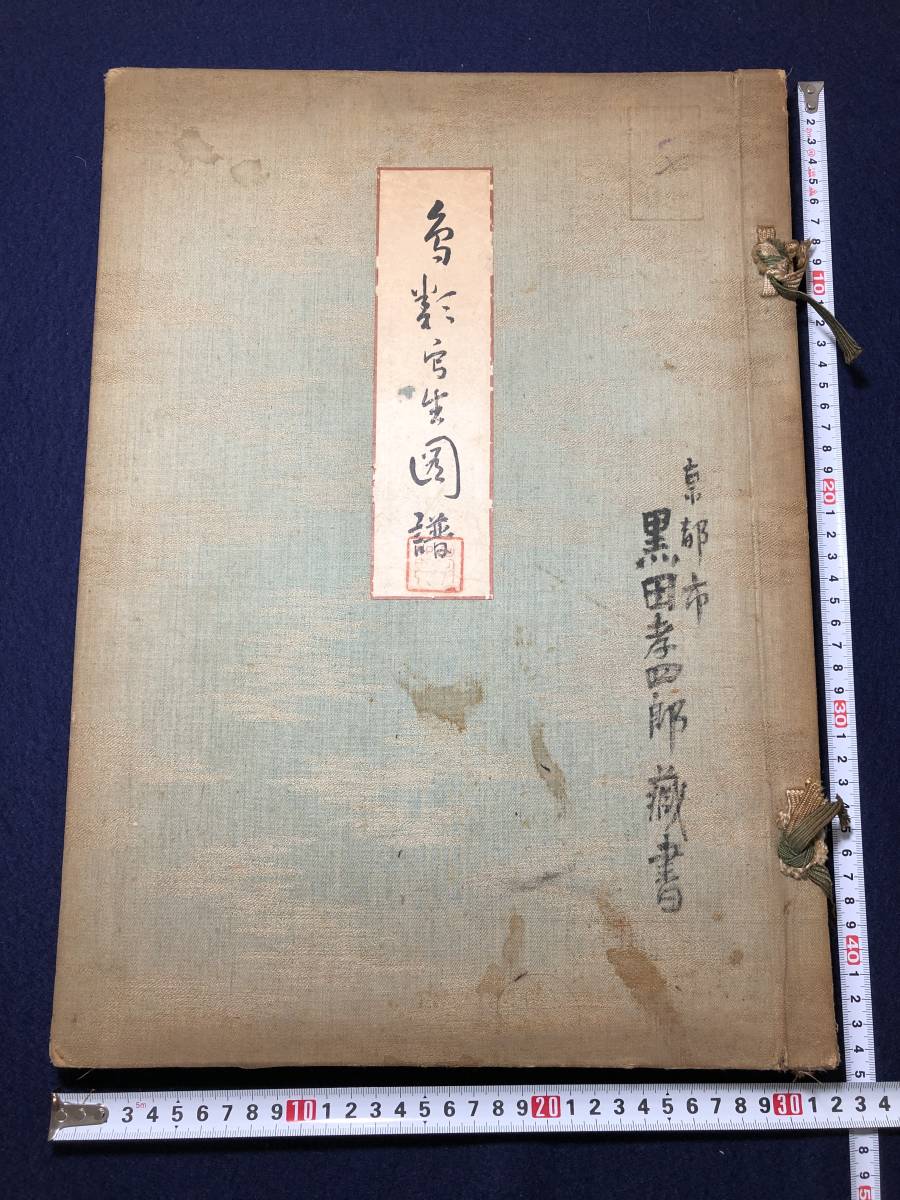 鳥類写生図譜
京都市
黒田孝四郎蔵書
1 2 3 4 5 6 7 8 9 10 1 2 3 4 5 6 7 8 9 20 1 2 3 4 5 6 7 8 9 30 1 2 3 4 5 6 7 8 9 40 1 2 3 4
3 4 5 6 7 8 9 10 1 2 3 4 5 6 7 8 9 20 1 2 3 4 5 6 7 8 9 30 1 2 3 4
5m